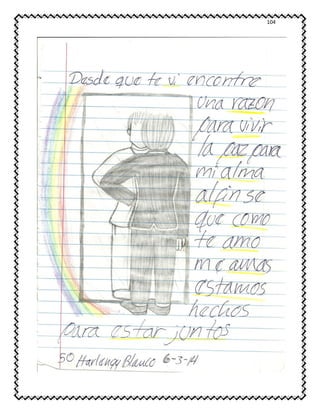 104
Desde que te vi encontre
una razon
para vivir
la paz para
mi alma
al fin se
que como
te amo
me amas
estamos
hechos
para estar juntos
50 Harlengy Blanco 6-3-14